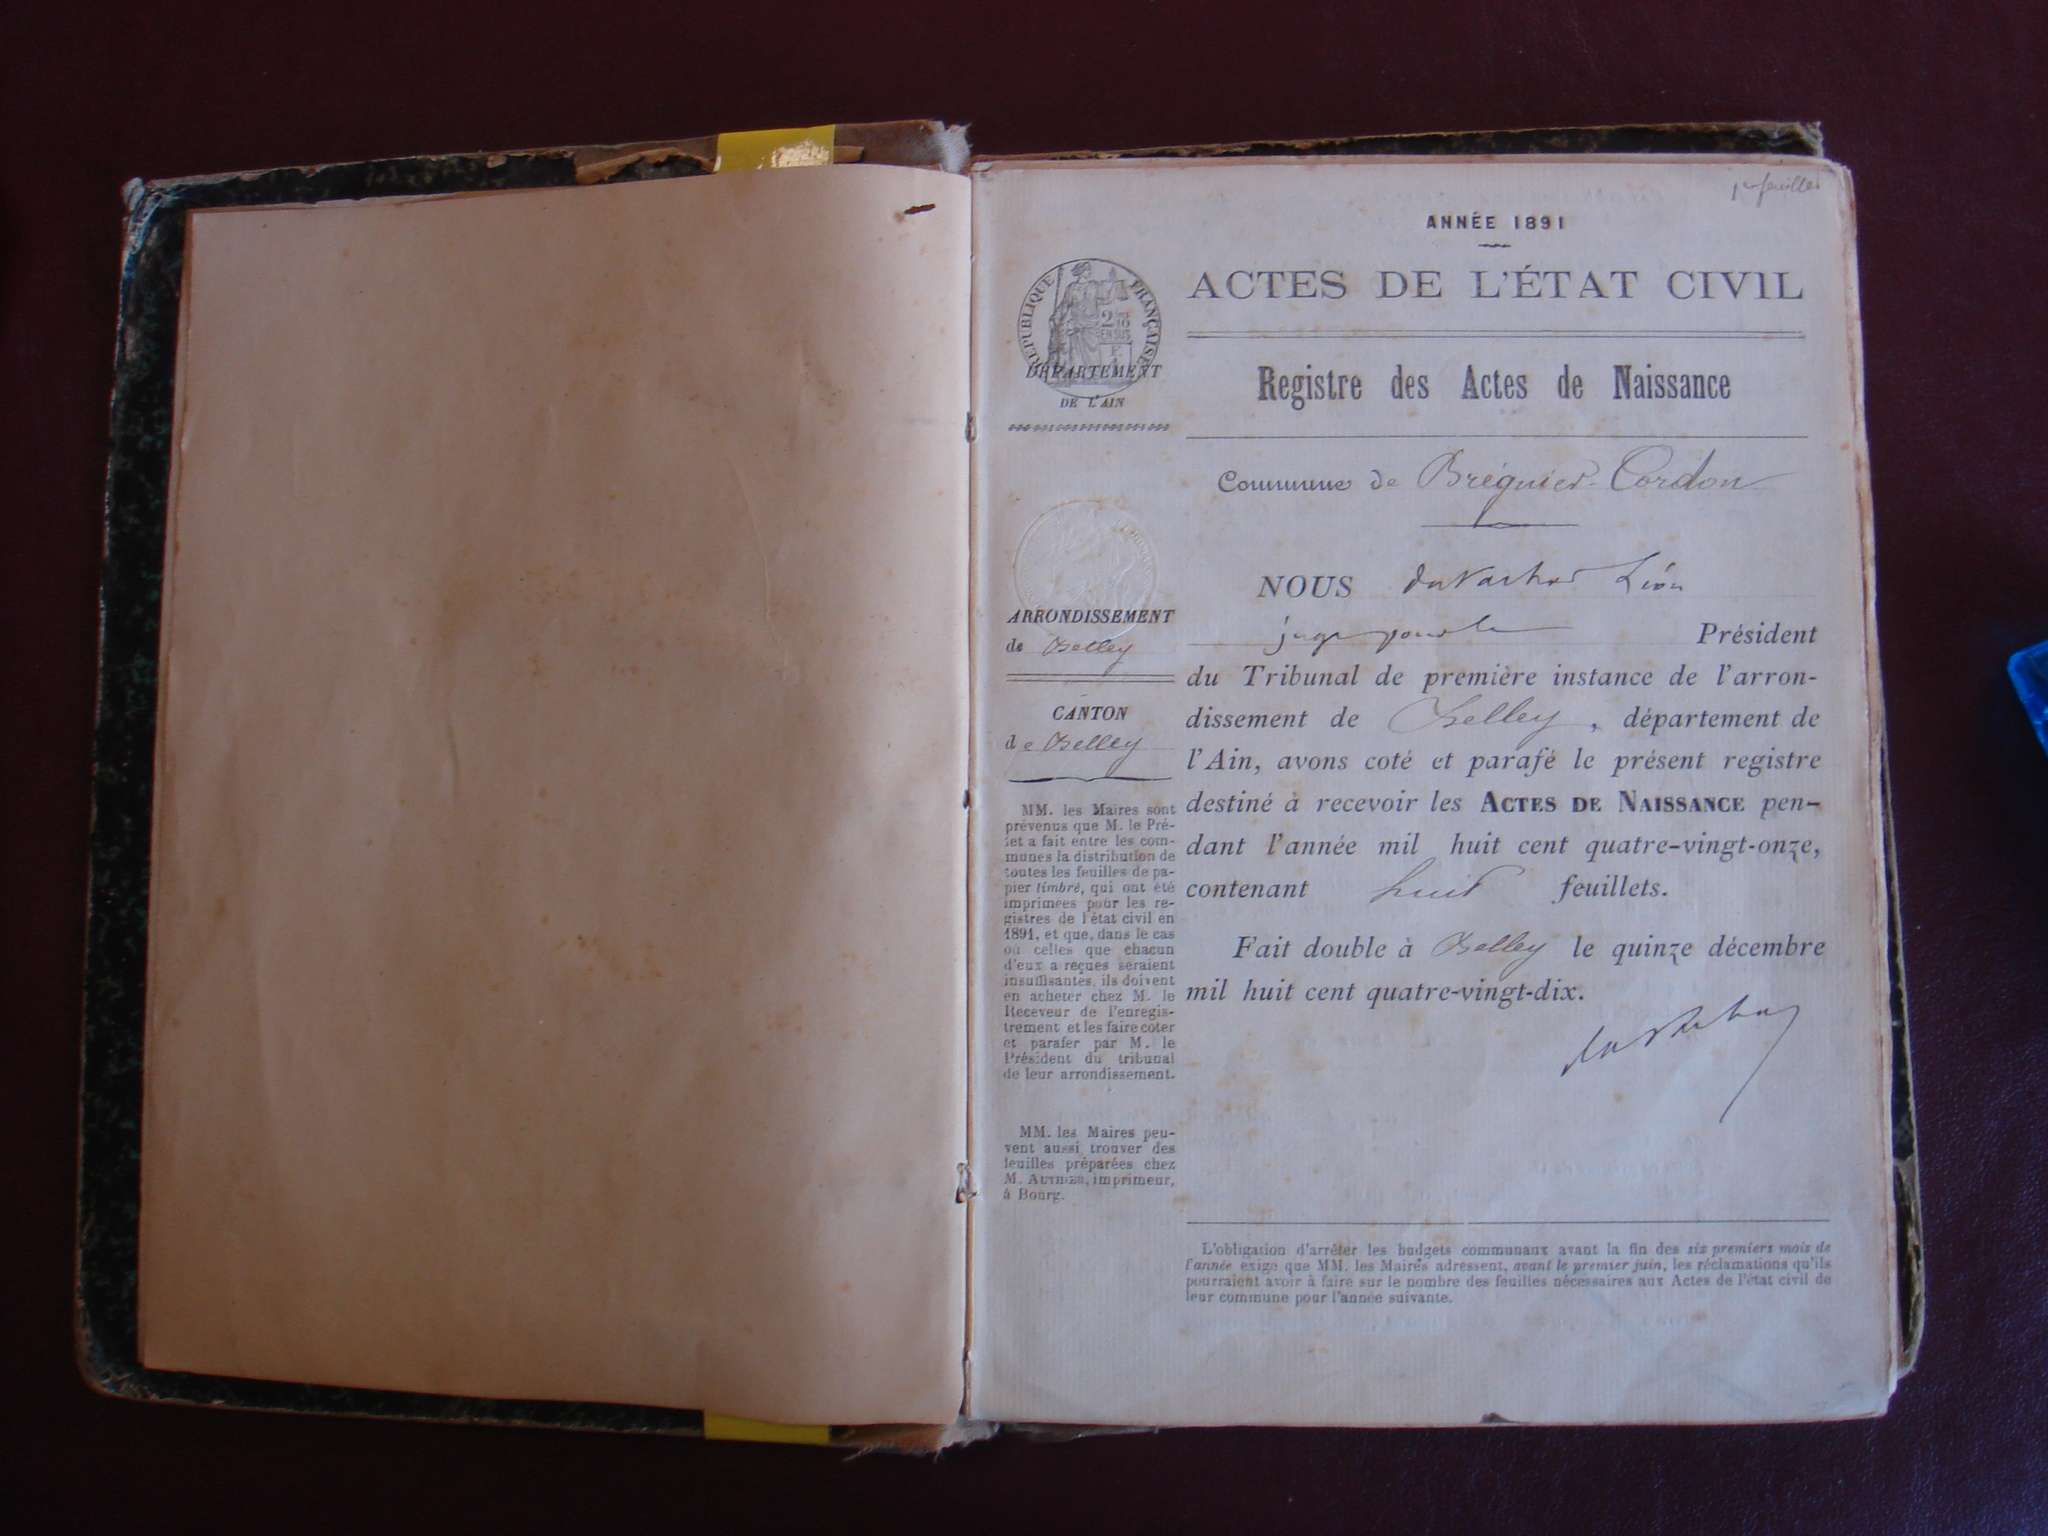 1er feuillet
ANNÉE 1891
ACTES DE L'ÉTAT CIVIL
Registre des Actes de Naissance
Commune de Brégnier-Cordon
RÉPUBLIQUE FRANÇAISE
2/10
EN SUS
DÉPARTEMENT
DE L'AIN
ARRONDISSEMENT
de Belley
CANTON
de Belley
MM. les Maires sont
prévenus que M. le Pré-
fet a fait entre les com-
munes la distribution de
toutes les feuilles de pa-
pier timbré, qui ont été
imprimées pour les re-
gistres de l'état civil en
1891, et que, dans le cas
où celles que chacun
d'eux a reçues seraient
insuffisantes, ils doivent
en acheter chez M. le
Receveur de l'enregis-
trement et les faire coter
et parafer par M. le
Président du tribunal
de leur arrondissement.
MM. les Maires peu-
vent aussi trouver des
feuilles préparées chez
M. AUTHIER, imprimeur,
à Bourg.
NOUS Léon
juge pour le Président
du Tribunal de première instance de l'arron-
dissement de Belley, département de
l'Ain, avons coté et parafé le présent registre
destiné à recevoir les ACTES DE NAISSANCE pen-
dant l'année mil huit cent quatre-vingt-onze,
contenant huit feuillets.
Fait double à Belley le quinze décembre
mil huit cent quatre-vingt-dix.
L'obligation d'arrêter les budgets communaux avant la fin des six premiers mois de
l'année exige que MM. les Maires adressent, avant le premier juin, les réclamations qu'ils
pourraient avoir à faire sur le nombre des feuilles nécessaires aux Actes de l'état civil de
leur commune pour l'année suivante.